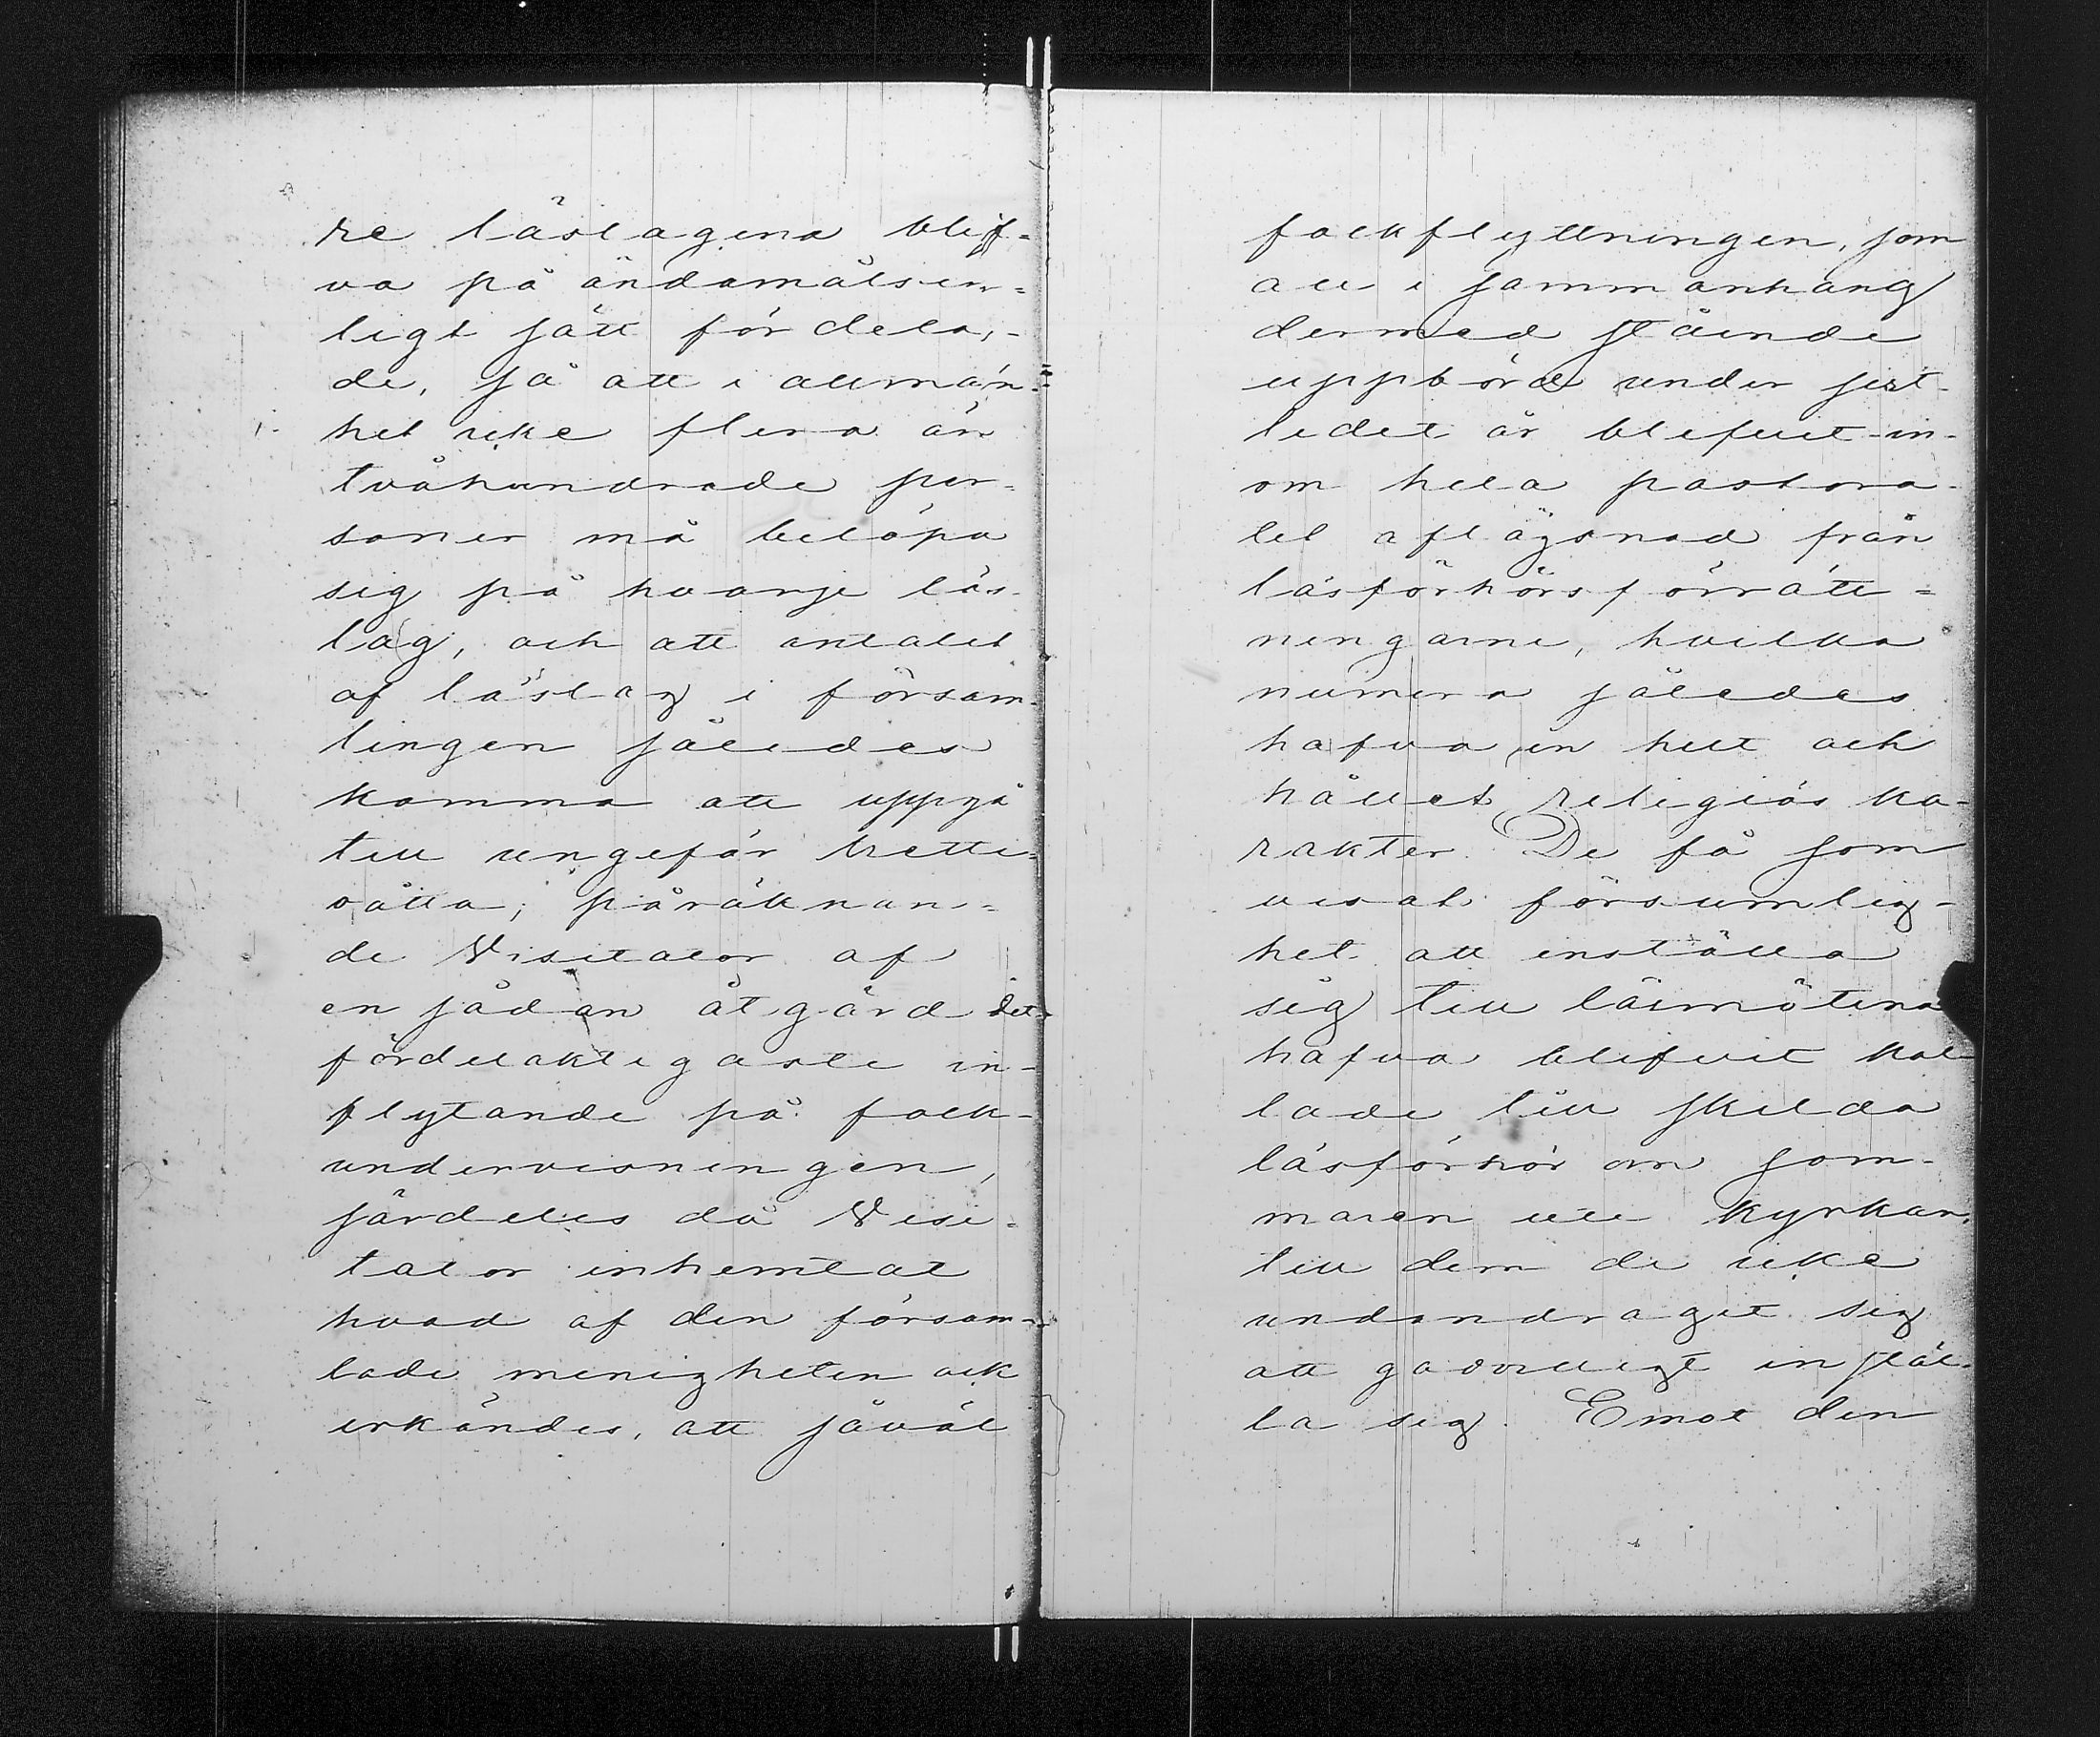 re läslagena blif-
va på ändamålsen-
ligt sätt fördela-
de, så att i allmän-
het icke flera än
tvåhundrade per-
soner må belöpa
sig på hvarje läs-
lag, och att antalet
af läslag i försam-
lingen således
komma att uppgå
till ungefär tretti-
oåtta; påräknan-
de Visitator af
en sådan åtgärd det
fördelaktigaste in-
flytande på folk-
undervisningen,
särdeles då Visi-
tator inhemtat
hvad af den försam-
lade menigheten ock
erkändes, att såväl
folkflyttningen, som
all i sammanhang
dermed stående
uppbörd under sist-
ledet år blifvit in-
om hela pastora-
tet aflägsnad från
läsförhörsförrätt-
ningarne, hvilka
numera således
hafva en helt och
hållet religiös ka-
rakter. De få som
visat försumlig-
het att inställa
sig till läsmötena
hafva blifvit kal-
lade till skilda
läsförhör om som-
maren uti kyrkan,
till dem de icke
undandragit sig
att godvilligt instäl-
la sig. Emot den